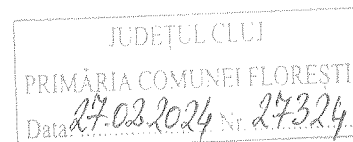 JUDEȚUL CLUJ
PRIMĂRIA COMUNEI FLOREȘTI
Data 27.02.2024 Nr. 27324